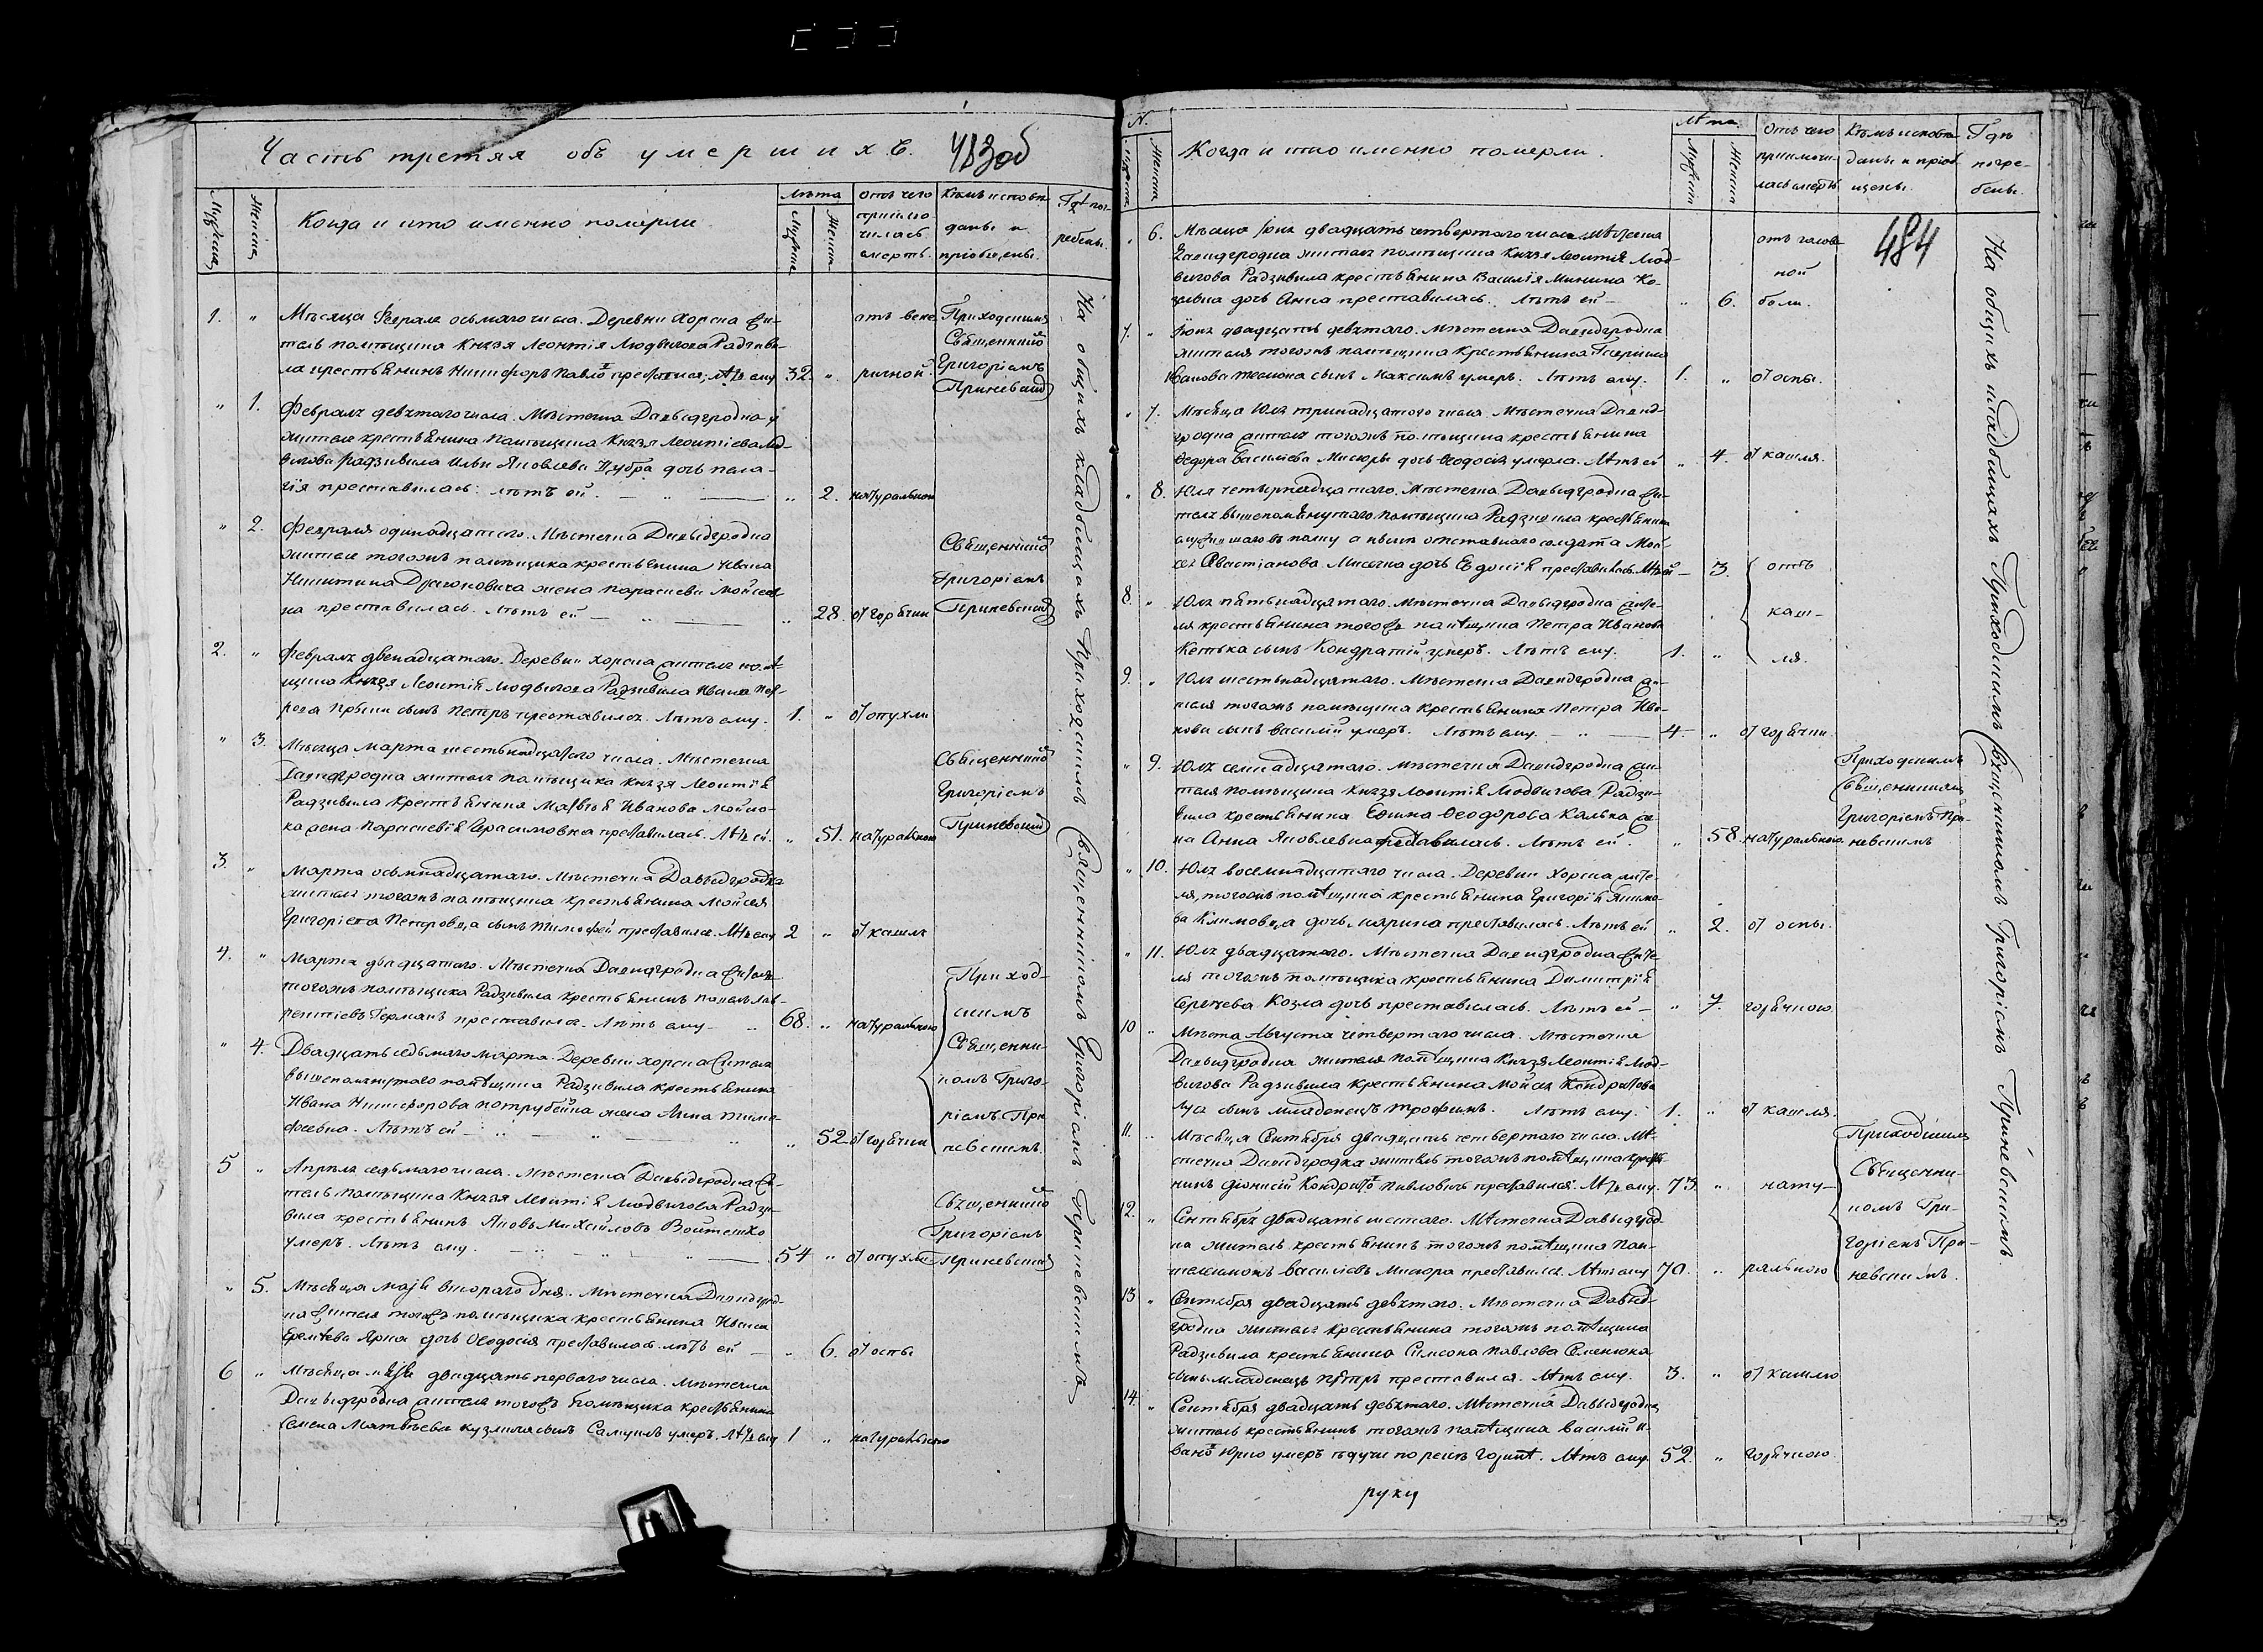 Часть третяя объ умершихъ.
483об
Мужеска
Женска
Когда и кто именно померли
Лѣта
Мужеска
Женска
отъ чего
приклю
чилась
смерть.
Кѣмъ исповѣ
даны и
пріобщены.
Гдѣ пог-
ребены.
1. „ Мѣсяца Февраля осьмаго числа. Деревни Хорска жи-
тель помѣщика Князя Леонтія Людвигова Радзиви-
ла крестьянинъ Никифоръ преставился, лѣтъ ему 32. „
Приходскимъ
Священникомъ
Григоріемъ
Приневскимъ
„ 1. Февраля девятаго числа. Мѣстечка Давыдгродка
жителя крестьянина помѣщика Князя Леонтіева Люд-
вигова Радзивила Ильи Яковлева дочь Пела-
гія преставилась. лѣтъ ей. „ 2. натуральною
„ 2. Февраля одинадцатого. Мѣстечка Давыдгродка
жителя тогожъ помѣщика крестьянина Ивана
Никитина жена Параскева Мойсеев-
на преставилась. лѣтъ ей „ 28. отъ горячки
Священникомъ
Григоріемъ
Приневскимъ
2. „ Февраля двенадцатаго. Деревни Хорска жителя помѣ-
щика Князя Леонтія Людвигова Радзивила Ивана
сынъ Петръ преставился. Лѣтъ ему. 1. „ отъ опухли
„ 3. Мѣсяца Марта шестьнадцатого числа. Мѣстечка
Давидгродка жителя помѣщика Князя Леонтія
Радзивила крестьянина Матвѣя Иванова
жена Параскевія Герасимовна преставилась. Лѣтъ ей. „ 51. натуральною
Священникомъ
Григоріемъ
Приневскимъ
3. „ Марта осьмнадцатаго. Мѣстечка Давыдгродка
жителя тогожъ помѣщика крестьянина Мойсея
Григоріева Петровца сынъ Тимофей преставился. Лѣтъ ему 2 „ отъ кашля
4. „ Марта двадцатаго. Мѣстечка Давидгродка житель
тогожъ помѣщика Радзивила крестьянинъ Павелъ Лав-
рентіевъ Германъ преставился. Лѣтъ ему 68. „ натуральною
„ 4. Двадцать седьмаго марта. Деревни Хорска жителя
вышепомянутаго помѣщика Радзивила крестьянина
Ивана Никифорова жена Анна Тимо-
феевна. Лѣтъ ей „ 52 отъ горячки
Приход-
скимъ
Священни-
комъ Григо-
ріемъ При
невскимъ.
5 „ Апрѣля седьмаго числа. Мѣстечка Давыдгродка жи-
тель помѣщика Князя Леонтія Людвигова Радзи-
вила крестьянинъ Яковъ Михайловъ Войтешко
умеръ. Лѣтъ ему. 54 „ отъ опухли
Священникомъ
Григоріемъ
Приневскимъ
„ 5. Мѣсяца маія втораго дня. Мѣстечка Давидгрод-
ка жителя тогожъ помѣщика крестьянина Ивана
дочь Ѳеодосія преставилась. лѣтъ ей „ 6. отъ оспы
6 „ Мѣсяца маія двадцать перваго числа. Мѣстечка
Давыдгродка жителя тогожъ помѣщика крестьянина
Семена Матвѣева сынъ Самуилъ умеръ. Лѣтъ ему 1 „ натуральною
На общихъ кладбищахъ Приходскимъ Священникомъ Григоріемъ Приневскимъ
N.
Мужеска
Женска
Когда и кто именно померли.
Лѣта.
Мужеска
Женска
отъ чего
приключи-
лась смерть
Кѣмъ исповѣ-
даны и пріоб-
щены.
Гдѣ
погре-
бены.
484
„ 6. Мѣсяца Іюня двадцать четвертаго числа Мѣстечка
Давидгродка жителя помѣщика Князя Леонтія Люд-
вигова Радзивила крестьянина Василія
дочь Анна преставилась. Лѣтъ ей „ 6.
отъ голов
ной
боли.
7. „ Іюня двадцать девятаго. Мѣстечка Давидгродка
жителя тогожъ помѣщика крестьянина
Иванова сынъ Максимъ умеръ. Лѣтъ ему. 1. „ отъ оспы.
„ 7. Мѣсяца Юля тринадцатого числа. Мѣстечка Давид-
гродка жителя тогожъ помѣщика крестьянина
Ѳедора Василіева Мисюры дочь Ѳеодосія умерла. Лѣтъ ей „ 4. отъ кашля.
„ 8. Юля четырнадцатаго. Мѣстечка Давыдгродка жи-
теля вышепомянутаго помѣщика Радзивила крестьянина
служившаго въ полку а нынѣ отставнаго солдата Мой-
сея дочь Евдокія преставилась. Лѣтъ ей 3.
8. „ Юля пятьнадцатаго. Мѣстечка Давыдгродка жите-
ля крестьянина тогожъ помѣщика Петра Иванова
сынъ Кондратій умеръ. Лѣтъ ему. 1. „
отъ
каш-
ля.
9. „ Юля шестьнадцатаго. Мѣстечка Давидгродка жи-
теля тогожъ помѣщика крестьянина Петра Ива-
нова сынъ Василій умеръ. Лѣтъ ему. 4. „ отъ горячки.
„ 9. Юля семнадцатаго. Мѣстечка Давидгродка жи-
теля помѣщика Князя Леонтія Людвигова Радзи-
вила крестьянина Ѳеодорова же-
на Анна Яковлевна преставилась. Лѣтъ ей. „ 58. натуральною.
Приходскимъ
Священникомъ
Григоріемъ При-
невскимъ
„ 10. Юля восемнадцатаго числа. Деревни Хорска жите-
ля, тогожъ помѣщика крестьянина Григорія
дочь Марина преставилась. Лѣтъ ей „ 2. отъ оспы.
„ 11. Юля двадцатаго. Мѣстечка Давидгродка жите-
ля тогожъ помѣщика крестьянина Димитрія
Козла дочь преставилась. Лѣтъ ей „ 7. горячкою
10 „ Августа четвертаго числа. Мѣстечка
Давыдгродка жителя помѣщика Князя Леонтія Люд-
вигова Радзивила крестьянина Мойсея Кондратова
сынъ младенецъ Трофимъ. Лѣтъ ему. 1. „ отъ кашля.
11. „ Мѣсяца Сентября двадцать четвертаго числа. Мѣ-
стечка Давидгродка житель тогожъ помѣщика крестья-
нинъ Діонисій Павловичъ преставился. Лѣтъ ему. 73 „
12. „ Сентября двадцать шестаго. Мѣстечка Давыдгрод-
ка житель крестьянинъ тогожъ помѣщика Пан-
телеймонъ Василіевъ Мисюра преставился. Лѣтъ ему 70. „
нату-
ральною
Приходскимъ
Священни-
комъ Гри-
горіемъ При-
невскимъ.
13 „ Сентября двадцать девятаго. Мѣстечка Давыд-
гродка жителя крестьянина тогожъ помѣщика
Радзивила крестьянина Симеона Павлова
сынъ младенецъ Петръ преставился. Лѣтъ ему. 3. „ отъ кашлю
14. „ Сентября двадцать девятаго. Мѣстечка Давыдгродка
житель крестьянинъ тогожъ помѣщика Василій И-
умеръ Лѣтъ ему 52. „ горячкою.
руку
На общихъ кладбищахъ Приходскимъ Священникомъ Григоріемъ Приневскимъ